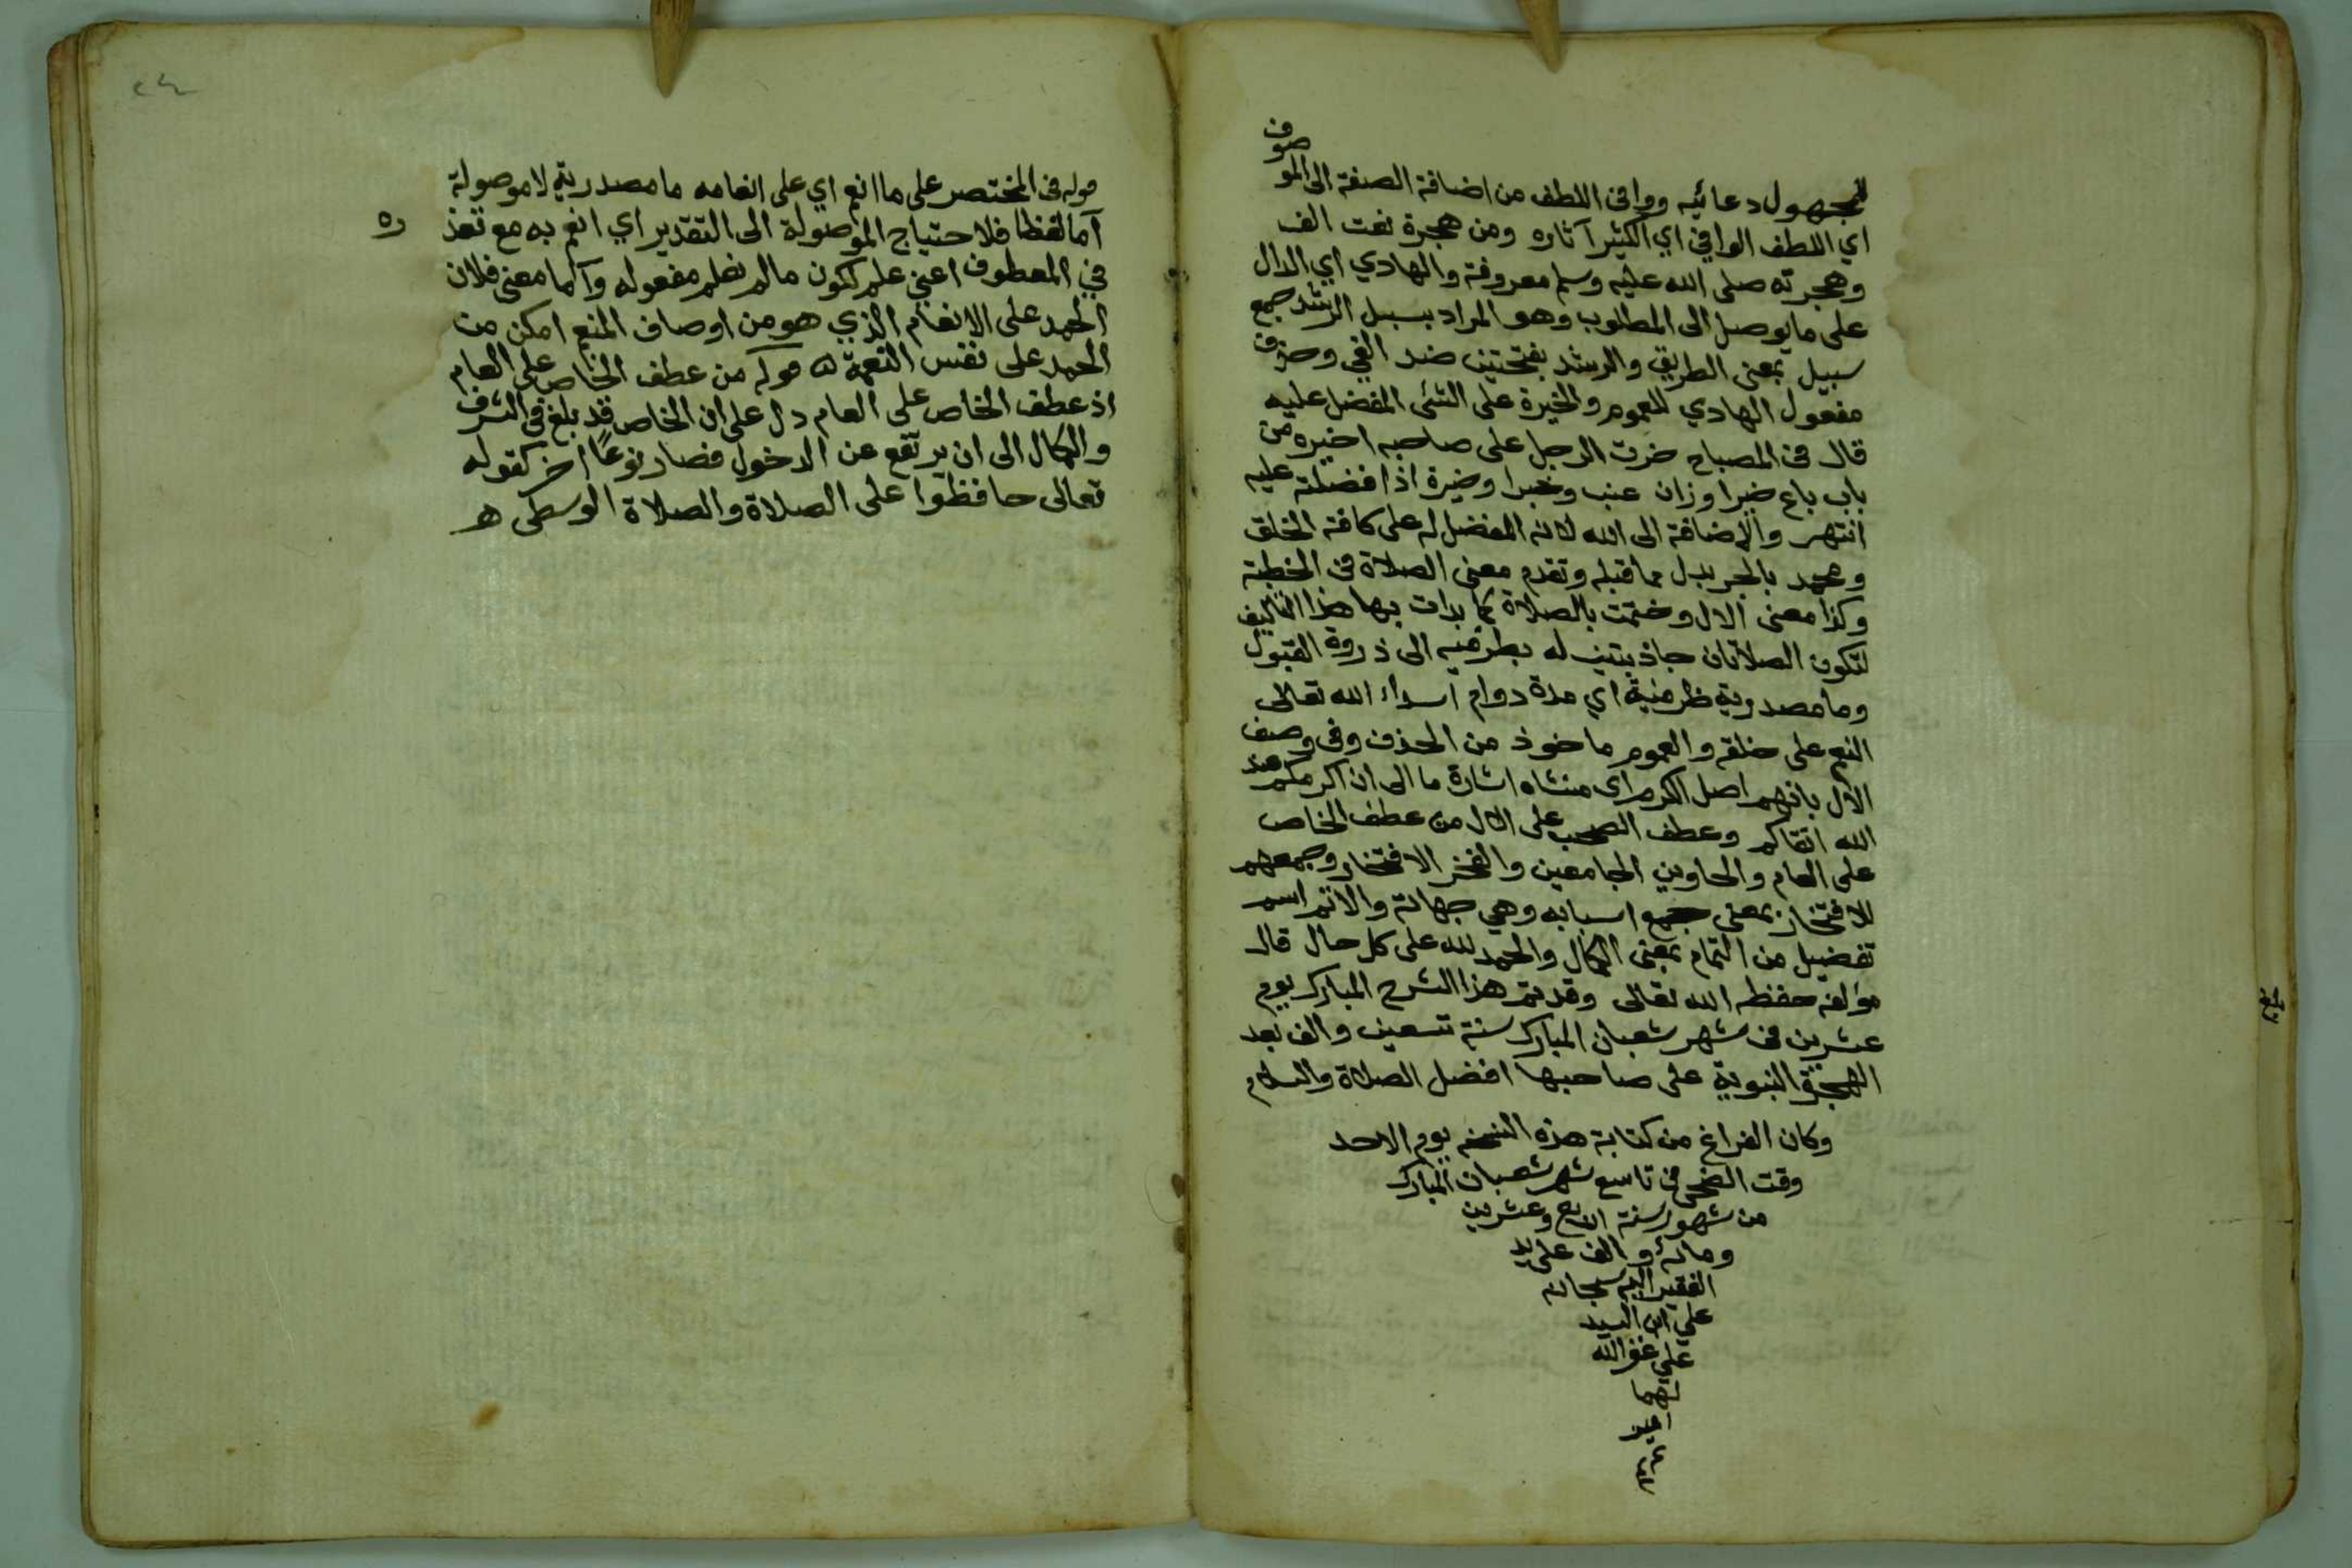 للمجهول دعائيه ووافى اللطف من اضافة الصفة الى الموصوف
اي اللطف الوافي اي الكثير آثاره ومن هجرة نعت الف
وهجرته صلى الله عليه وسلم معروفة والهادي اي الدال
على ما يوصل الى المطلوب وهو المراد بسبل الرشد جمع
سبيل بمعنى الطريق والرشد بفتحتين ضد الغي وحذف
مفعول الهادي للعموم والخيرة على الشئ المفضل عليه
قال فى المصباح خرت الرجل على صاحبه اخيره من
باب باع خيرا وزان عنب وخيرا وخيرة اذا فضلته عليه
انتهى والاضافة الى الله لانه المفضل له على كافة الخلق
ومحمد بالجر بدل مما قبله وتقدم معنى الصلاة فى الخطبة
وكذا معنى الال وختمت بالصلاة كما بدات بها هذا التاليف
لتكون الصلاتان جاذبتين له بطرفيه الى ذروة القبول
وما مصدرية ظرفية اي مدة دوام اسداء الله تعالى
النعم على خلقه والعموم ماخوذ من الحذف وفى وصف
الآل بانهم اصل الكرم اى منشاه اشارة ما الى ان اكرمكم عند
الله اتقاكم وعطف الصحب على الال من عطف الخاص
على العام والحاوين الجامعين والفخر الافتخار وجمعهم
للافتخار بمعنى جميع اسبابه وهي جهاته والاتم اسم
تفضيل من التمام بمعنى الكمال والحمد لله على كل حال قال
مؤلفه حفظه الله تعالى وقد تم هذا الشرح المبارك يوم
عشرين فى شهر شعبان المبارك سنة تسعين والف بعد
الهجرة النبوية على صاحبها افضل الصلاة والسلام
وكان الفراغ من كتابة هذه النسخه يوم الاحد
وقت الضحى فى تاسع شهر شعبان المبارك
من شهور سنة اربع وعشرين
ومائة والف على يد
الفقير اليه سبحانه
علي ابن السيد
علي غفر الله
لهما
امين
قوله فى المختصر على ما انعم اي على انعامه ما مصدرية لا موصولة
اما لفظا فلاحتياج الموصولة الى التقدير اي انعم به مع تعذره
في المعطوف اعني علم لكون ما لم نعلم مفعوله واما معنى فلان
الحمد على الانعام الذي هو من اوصاف المنعم امكن من
الحمد على نفس النعمة قوله من عطف الخاص على العام
اذ عطف الخاص على العام دل على ان الخاص قد بلغ فى الشرف
والكمال الى ان يرتفع عن الدخول فصار نوعًا آخر كقوله
تعالى حافظوا على الصلاة والصلاة الوسطى هـ